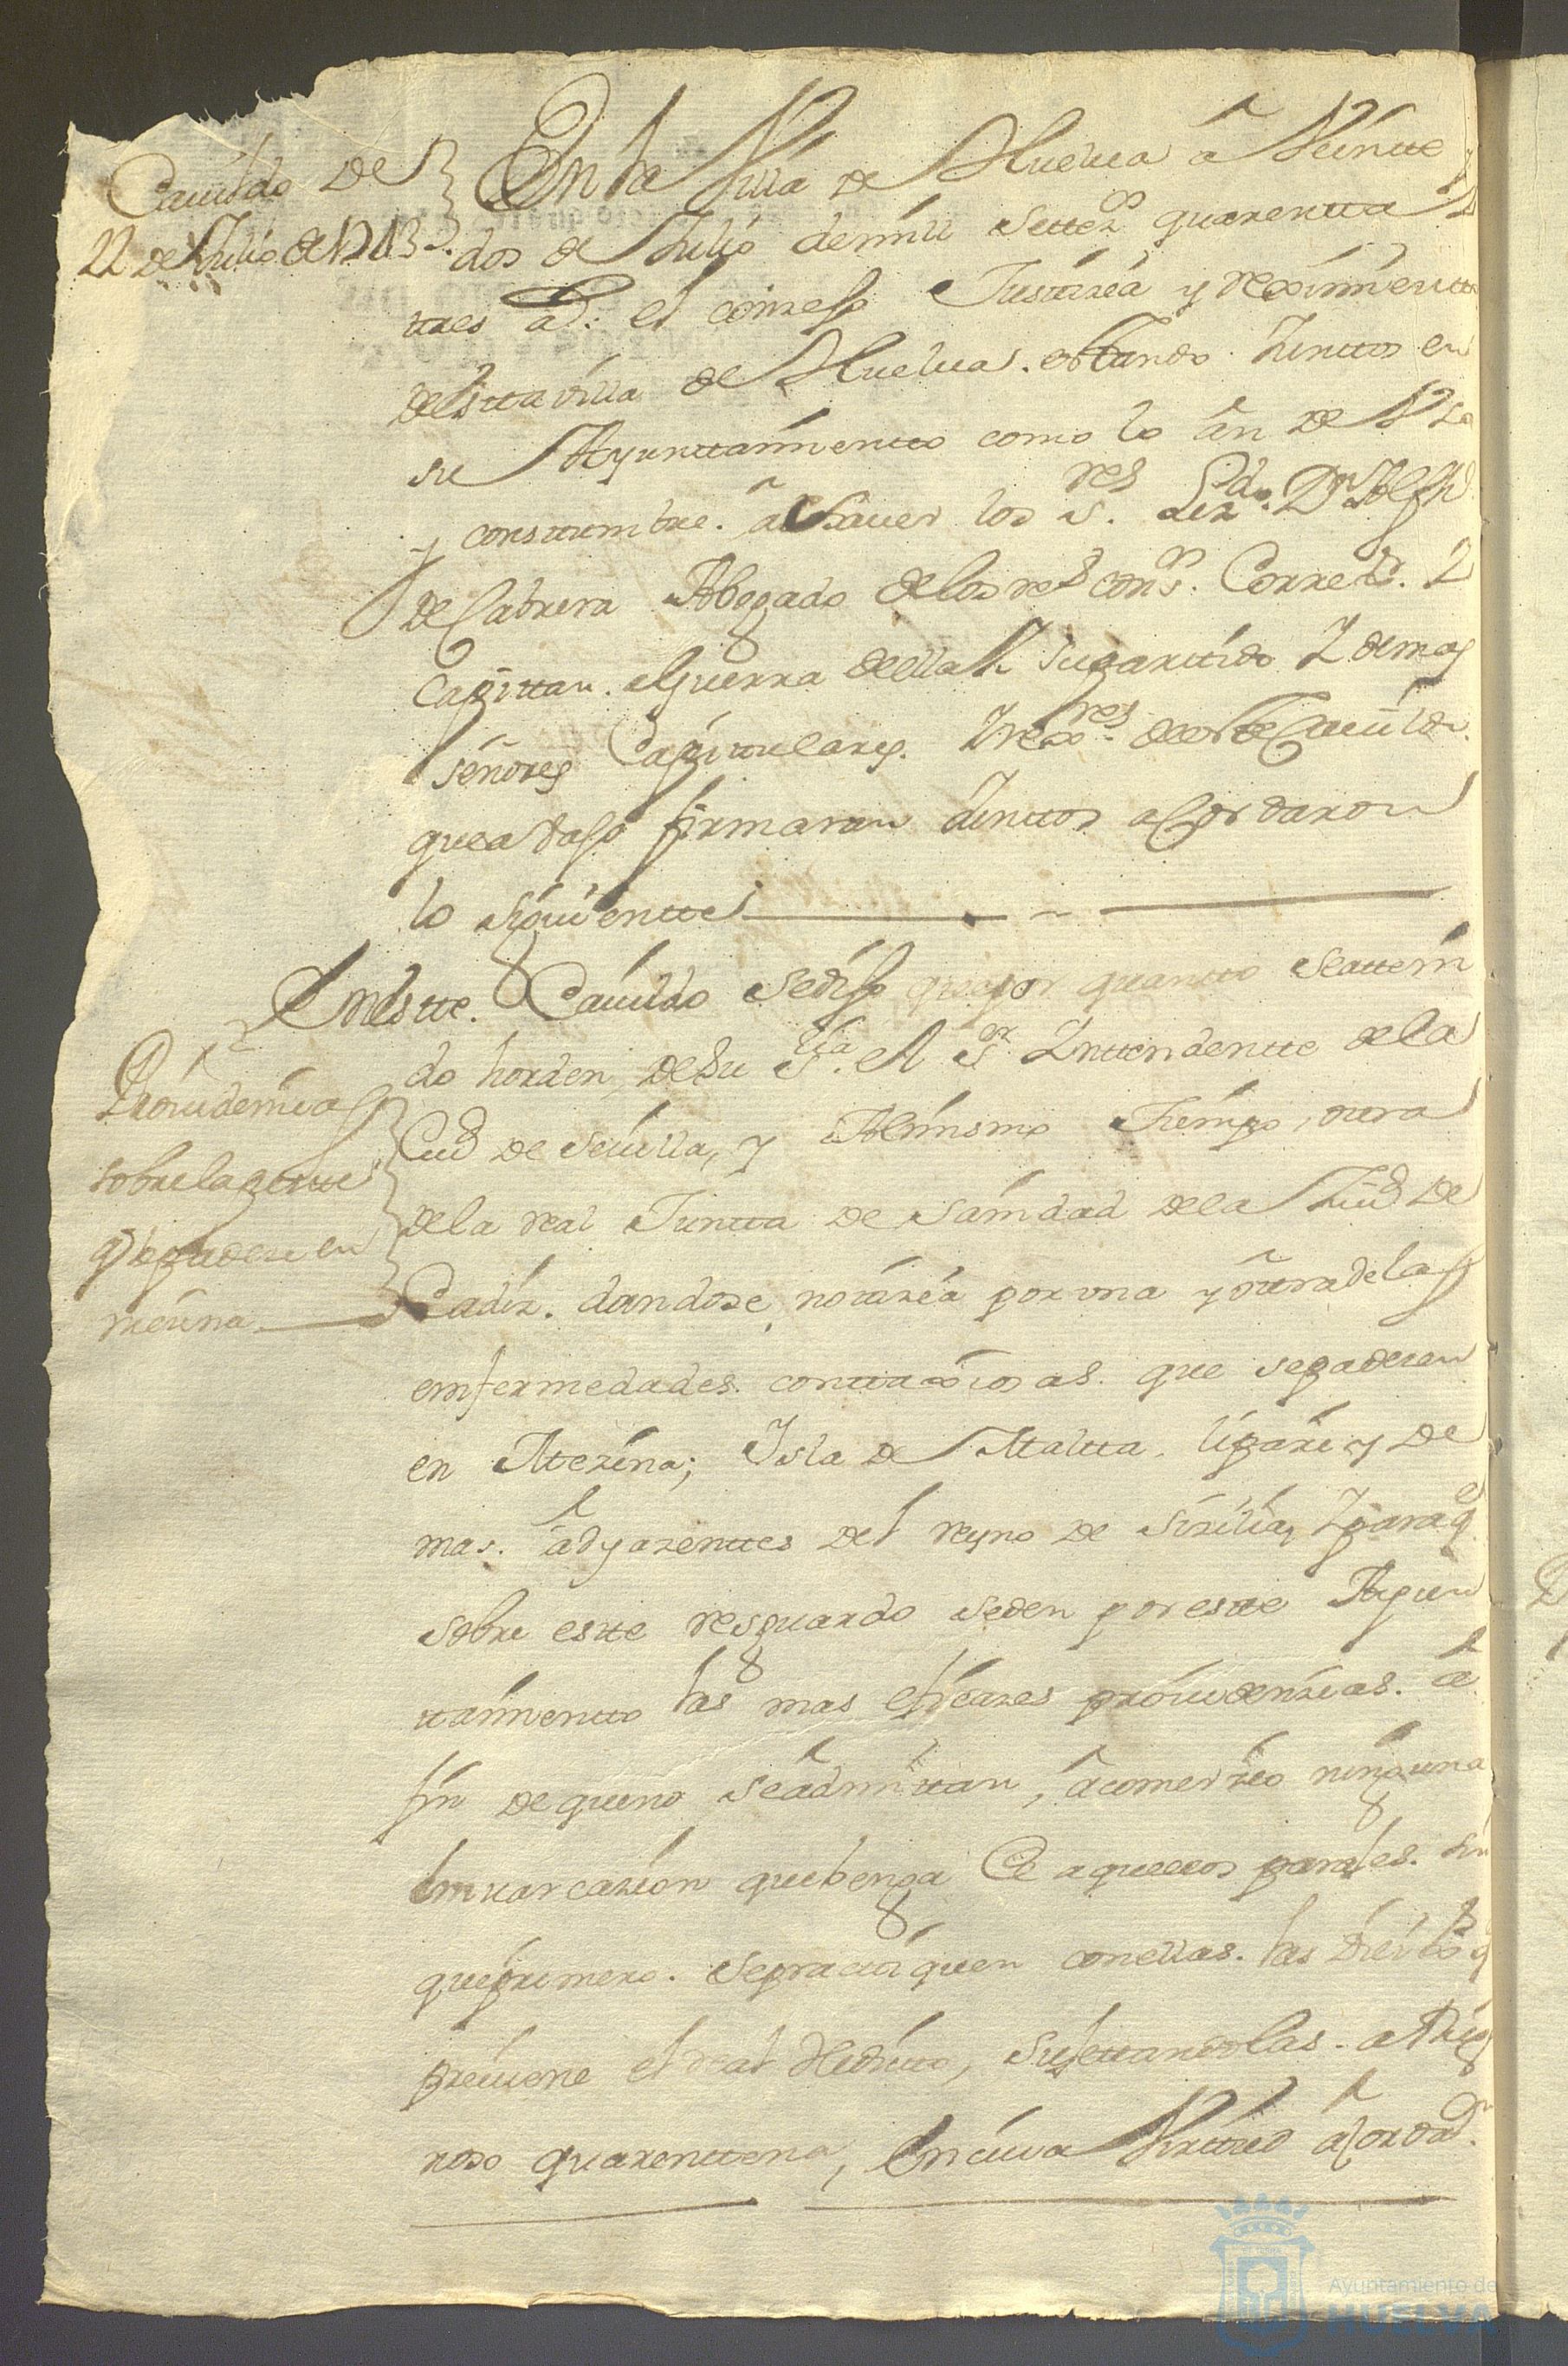 Cauildo de
22 de Jullio de 1743
En la Villa de Huelua â Veinte y
dos de Jullio de mill settez.os quarentta y
ttres a.s el conzejo Justizia y reximientto
de estta villa de Huelua. estando Junttos en
su Ayunttamientto como lo ân de Vso
y costtumbre. â sauer los s.res Liz.do D.n Alfh.o
de Cabrera Abogado de los re.s cons.os Corre.or Y
Capittan. aguerra de ella Y su parttido Y demas
señores Capittulares. Y rex.res de este Cauildo.
que a vajo firmaran Junttos acordaron
lo siguientte
En estte. Cauildo se dijo que por quantto se a tteni
do horden, de su S.ria el S.or Yntendentte de la
Ciu.d de Seuilla, y Al mismo Tiempo, ottra
de la real Juntta de Sanidad de la Ciu.d de
Cadiz. dandose notizia por vna y ôttra de las
enfermedades. conttaxiosas. que se padezen
en Mezina; Ysla de Maltta. lipari y de
mas. âdyazenttes del reyno de Sizilia, Y para q.e
sobre estte resguardo se den por estte Ayun
ttamientto las mas eficazes prouidenzias. â
fin de que no se âdmittan, â comerzio ninguna
Embarcazion que benga de aquellos parajes. sin
que primero. se practtiquen con ellas. las q
preuiene el real Hedictto, sujettandolas. a Rigo
roso quarenttena, En cuia Virttud âcordar.n
Prouidenzia
sobre la peste
q se padeze en
mecina
Ayuntamiento de
HUELVA